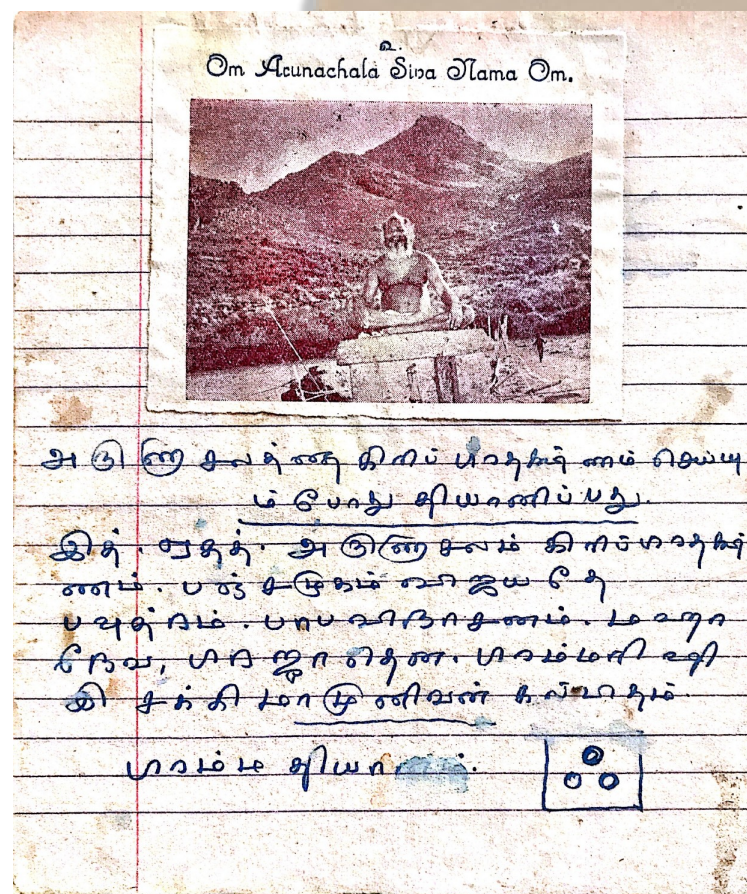 உ.
Om Arunachala Siva Nama Om.
அருணாசலத்தை கிரிப் பிரதக்ஷணம் செய்யு
ம் போது தியானிப்பது.
இத். ஏதத். அருணாசலம் கிரிப்பிரதக்ஷ
ணம். பஞ்சமுகம் விஜய தே
பவித்ரம். பாப விநாசனம். மஹா
தேவ,
சக்தி மாமுனிவன்
பிரம்ம தியானம்.